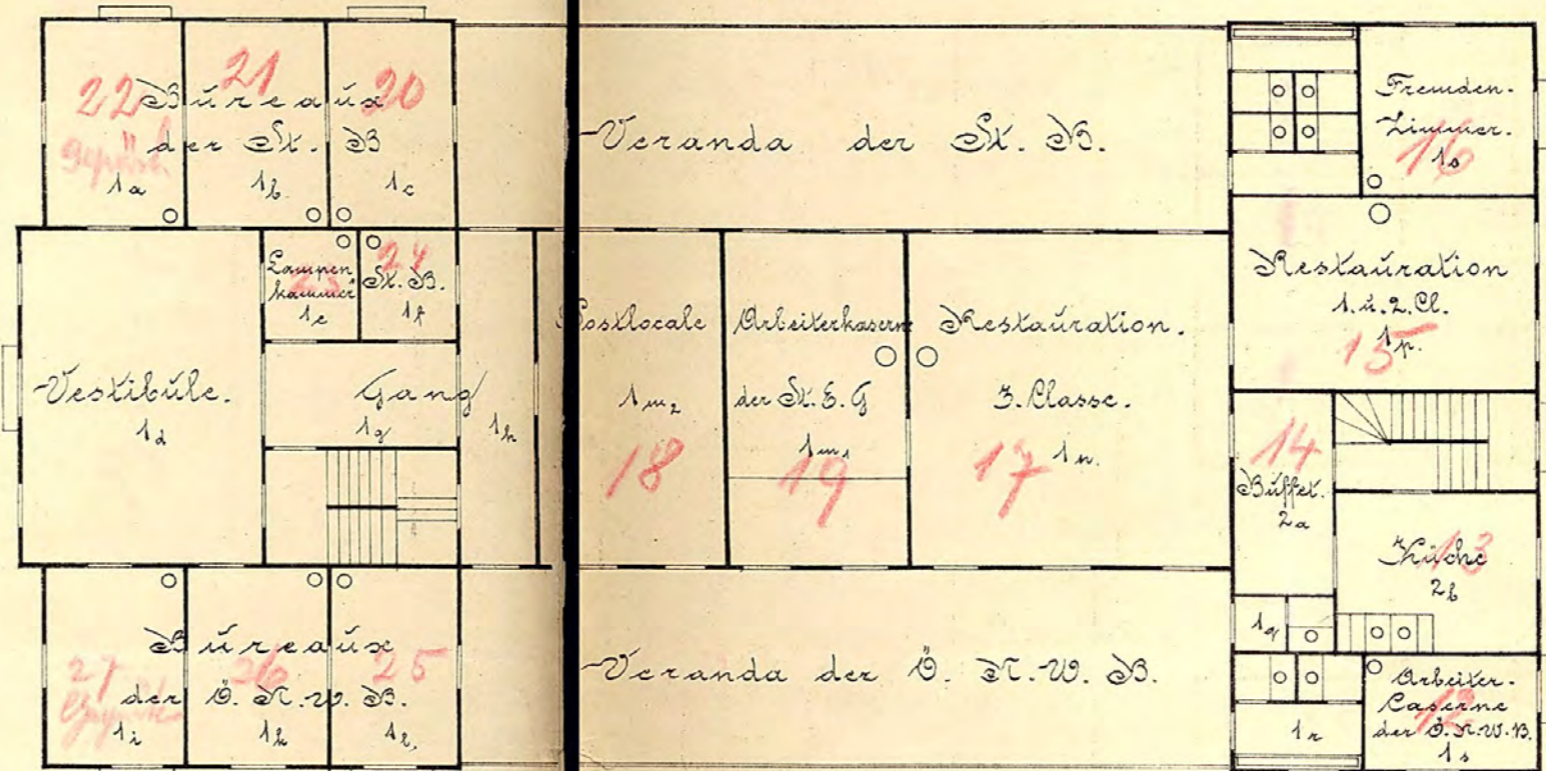 22 21 20
Büreaux
der St. B
Gepäck
1a 1b. 1c
Veranda der St. B.
Fremden-
Zimmer.
16
1o
Lampen
kammer
23
1e
24
St. B.
1f
Vestibüle.
1d
Gang
1g
1h
Postlocale
1m2
18
Arbeiterkaserne
der St. E. G
1m1
19
Restauration.
3. Classe.
1n.
17
Restauration
1. u. 2. Cl.
1p.
15
14
Büffet.
2a
Küche
13
2b
1q
Büreaux
27 26 25
der Ö. N. W. B.
1i 1k 1l,
Veranda der Ö. N. W. B.
1r
Arbeiter-
Caserne
12
der Ö. N. W. B.
1s